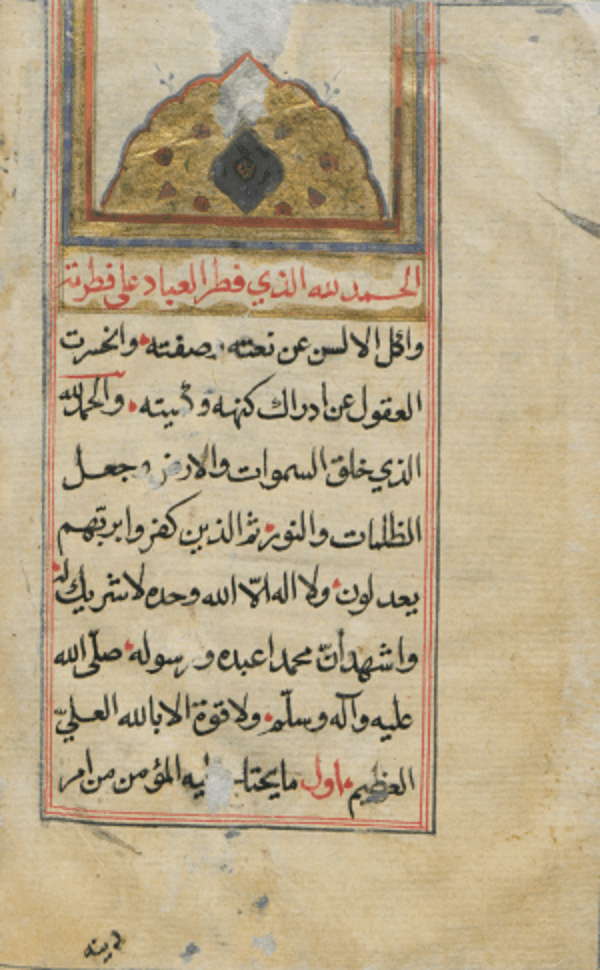 الحمد لله الذي فطر العباد على فطرته
واكل الالسن عن نعته وصفته وانحسرت
العقول عن ادراك كنهه و والحمد لله
الذي خلق السموات والارض وجعل
الظلمات والنور ثم الذين كفروا بربهم
يعدلون ولا اله الّا الله وحده لا شريك له
واشهد انّ محمدا عبده ورسوله صلّى الله
عليه وآله وسلّم ولا قوة الا بالله العليّ
العظيم اول ما يحتاج اليه المؤمن من امر
دينه